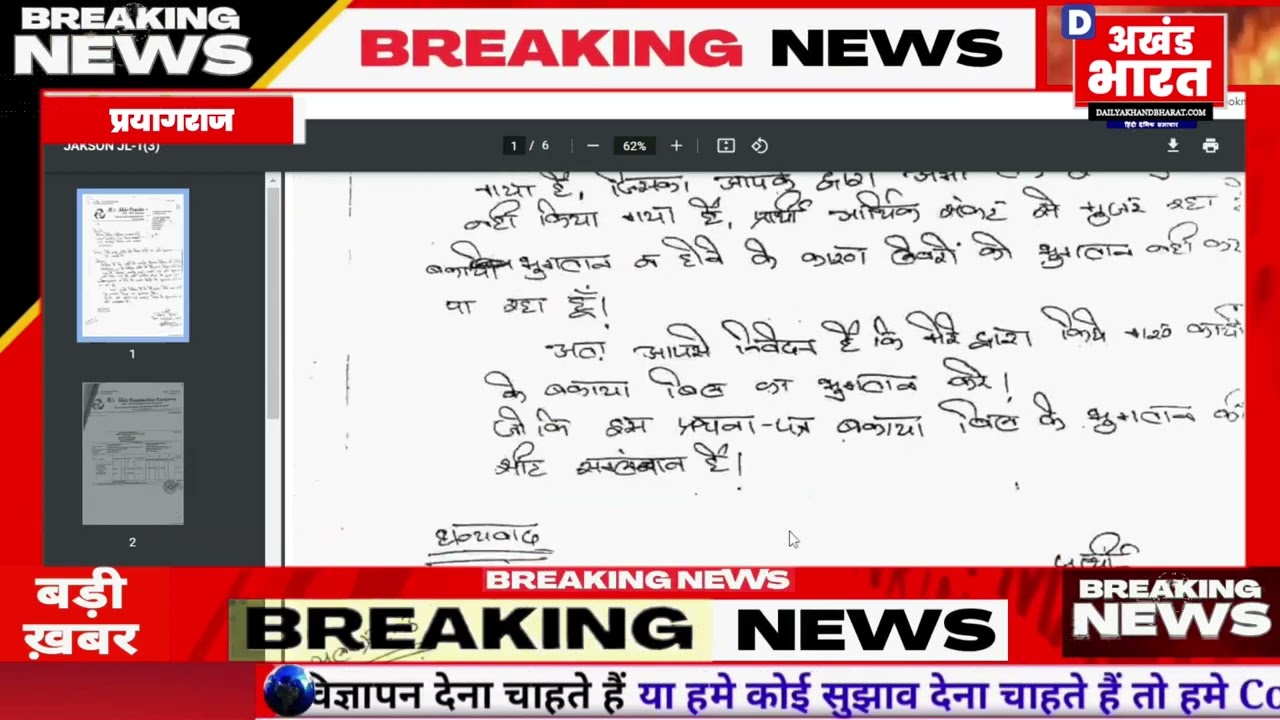 BREAKING
NEWS
BREAKING NEWS
D
अखंड
भारत
DAILYAKHANDBHARAT.COM
हिंदी दैनिक समाचार
प्रयागराज
JAKSON JL-1(3)
1 / 6
62%
नहीं किया गया है, प्रार्थी आर्थिक संकट से गुजर रहा
भुगतान न होने के कारण लेबरों को भुगतान नहीं कर
पा रहा हूँ।
अतः आपसे निवेदन है कि मेरे द्वारा किये गए कार्यो
के बकाया बिल का भुगतान करे।
जो कि इस प्रार्थना-पत्र बकाया बिल के भुगतान की
धन्यवाद
1
2
बड़ी
ख़बर
BREAKING NEWS
BREAKING NEWS
BREAKING
NEWS
विज्ञापन देना चाहते हैं या हमे कोई सुझाव देना चाहते हैं तो हमे Co